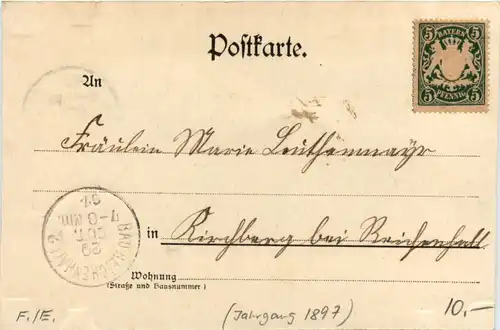 Postkarte.
5 BAYERN 5
5 PFENNIG 5
An
Fräulein Marie Leuthenmayr
BAD REICHENHALL 2
29 OCT.
7-8 Nm.
97
in Kirchberg bei Reichenhall
Wohnung
(Straße und Hausnummer)
F./E.
(Jahrgang 1897)
10,—